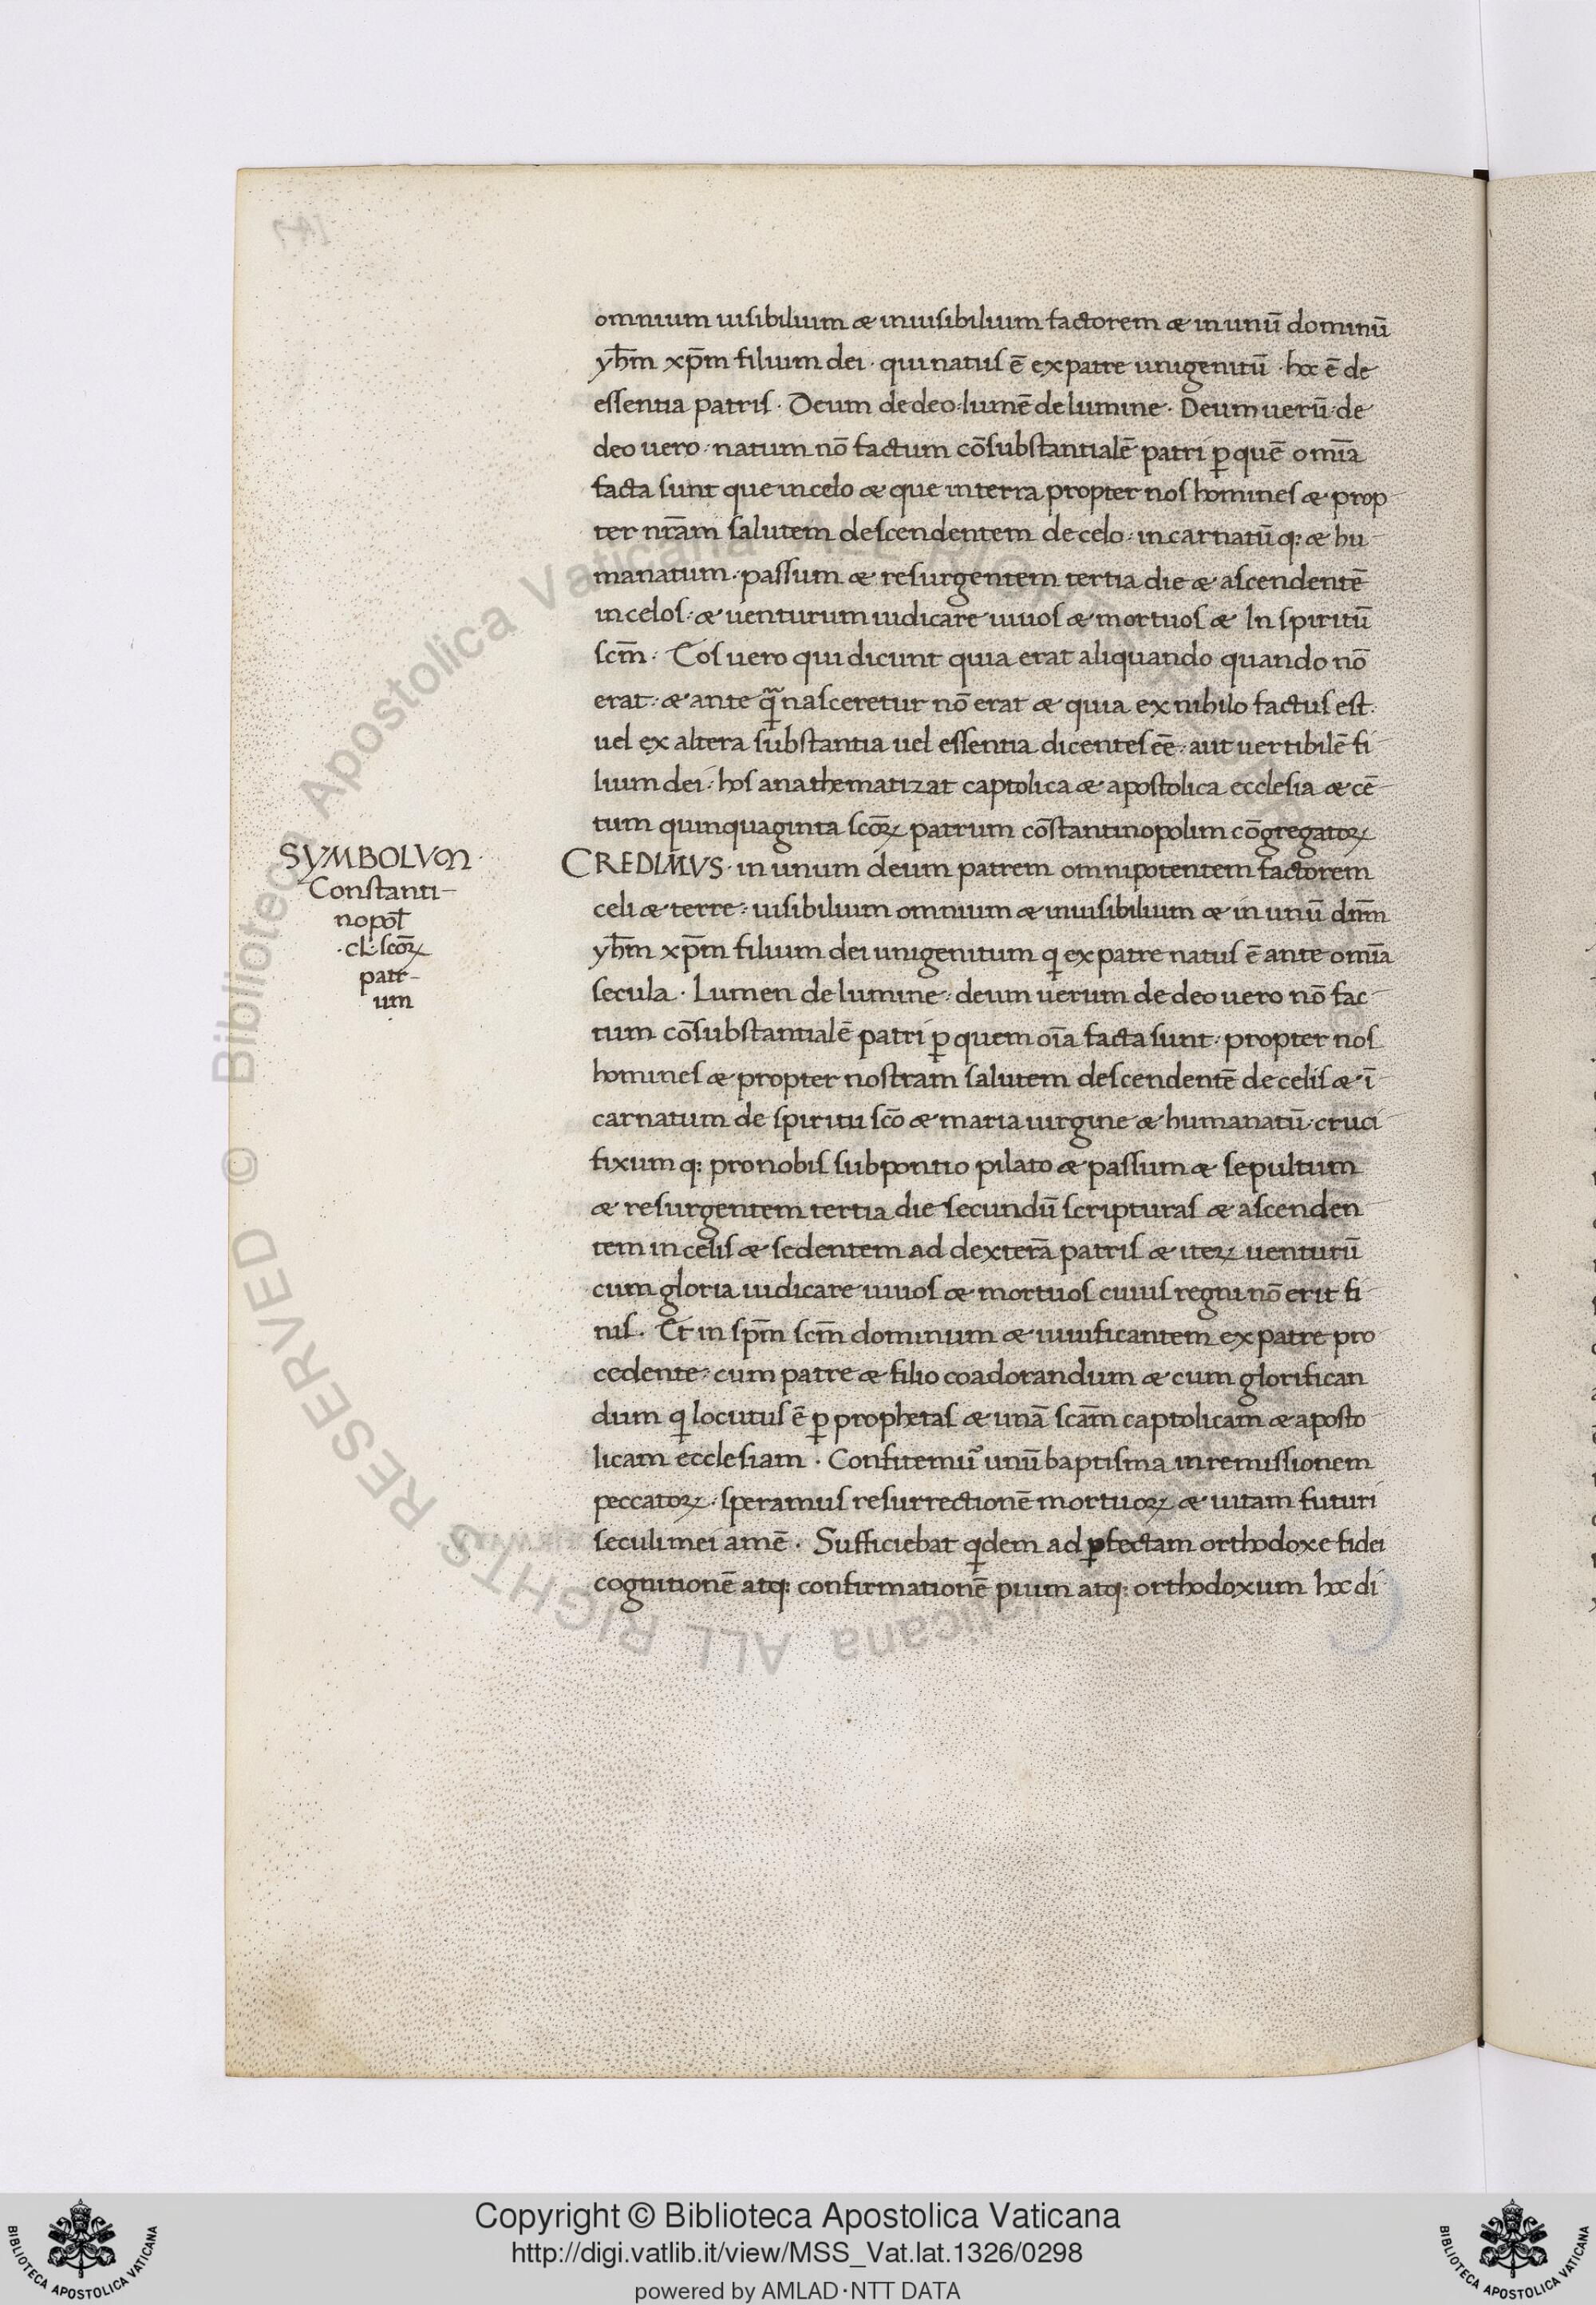 omnium uisibilium & inuisibilium factorem & in unū dominū
yh̄m xp̄m filium dei · qui natus ē ex patre unigenitū · hoc ē de
essentia patris · Deum de deo · lumē de lumine · Deum uerū de
deo uero · natum nō factum cōsubstantialē patri ꝑ quē omīa
facta sunt que in celo & que in terra propter nos homines & prop
ter nr̄am salutem descendentem de celo · incarnatū q: & hu
manatum · passum & resurgentem tertia die & ascendentē
in celos · & uenturum iudicare uiuos & mortuos & In spiritū
sc̄m · Eos uero qui dicunt quia erat aliquando quando nō
erat · & ante q̄ nasceretur nō erat & quia ex nihilo factus est ·
uel ex altera substantia uel essentia dicentes eē · aut uertibilē fi
lium dei · hos anathematizat captolica & apostolica ecclesia & cē
tum quinquaginta scōꝝ patrum cōstantinopolim cōgregatoꝝ
SYMBOLVM ·
Constanti-
nopol̄
· cl · scōꝝ
patr-
um
CREDIMVS · in unum deum patrem omnipotentem factorem
celi & terre · uisibilium omnium & inuisibilium & in unū dn̄m
yh̄m xp̄m filium dei unigenitum q ex patre natus ē ante omīa
secula · Lumen de lumine · deum uerum de deo uero nō fac
tum cōsubstantialē patri ꝑ quem oīa facta sunt · propter nos
homines & propter nostram salutem descendentē de celis & ī
carnatum de spiritu scō & maria uirgine & humanatū · cruci
fixum q: pro nobis sub pontio pilato & passum & sepultum
& resurgentem tertia die secundū scripturas & ascenden
tem in celis & sedentem ad dexterā patris & iteꝝ uenturū
cum gloria iudicare uiuos & mortuos cuius regni nō erit fi
nis · Et in sp̄m sc̄m dominum & uiuificantem ex patre pro
cedente · cum patre & filio coadorandum & cum glorifican
dum q locutus ē ꝑ prophetas & unā scām captolicam & aposto
licam ecclesiam · Confitemur unū baptisma in remissionem
peccatoꝝ · speramus resurrectionē mortuoꝝ & uitam futuri
seculi mei amē · Sufficiebat qdem ad ꝑfectam orthodoxe fidei
cognitionē atq: confirmationē pium atq: orthodoxum hoc di
© Biblioteca Apostolica Vaticana ALL RIGHTS RESERVED
Copyright © Biblioteca Apostolica Vaticana
http://digi.vatlib.it/view/MSS_Vat.lat.1326/0298
powered by AMLAD·NTT DATA
BIBLIOTECA APOSTOLICA VATICANA
BIBLIOTECA APOSTOLICA VATICANA